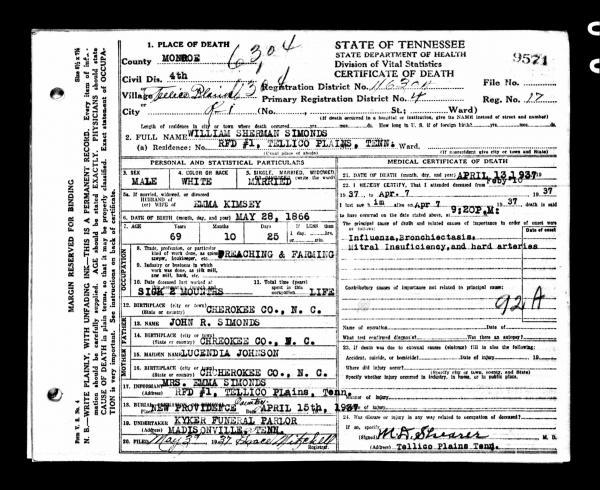 STATE OF TENNESSEE
STATE DEPARTMENT OF HEALTH
Division of Vital Statistics
CERTIFICATE OF DEATH
9571
1. PLACE OF DEATH
County MONROE
6304
Civil Dis. 4th
Village Tellico Plains
Registration District No.
File No.
Primary Registration District No. 4
Reg. No. 17
City R-1 (No. , St.; Ward)
(If death occurred in a hospital or institution, give its NAME instead of street and number)
Length of residence in city or town where death occurred yrs. mos. ds. How long in U. S. if of foreign birth? yrs. mos. ds.
2. FULL NAME WILLIAM SHERMAN SIMONDS
(a) Residence: No. RFD #1, TELLICO PLAINS, TENN. Ward.
(Usual place of abode) (If nonresident give city or town and State)
PERSONAL AND STATISTICAL PARTICULARS
3. SEX MALE
4. COLOR OR RACE WHITE
5. SINGLE, MARRIED, WIDOWED, (write the word) MARRIED
5a. If married, widowed, or divorced
HUSBAND of
(or) WIFE of EMMA KIMSEY
6. DATE OF BIRTH (month, day, and year) MAY 28, 1866
7. AGE Years 69 Months 10 Days 25 If LESS than 1 day, hrs. or min.
OCCUPATION
8. Trade, profession, or particular kind of work done, as spinner, sawyer, bookkeeper, etc. PREACHING & FARMING
9. Industry or business in which work was done, as silk mill, saw mill, bank, etc.
10. Date deceased last worked at
SICK 2 MONTHS
11. Total time (years) spent in this occupation LIFE
12. BIRTHPLACE (city or town) CHEROKEE CO., N. C.
FATHER
13. NAME JOHN R. SIMONDS
14. BIRTHPLACE (city or town) CHREOKEE CO., N. C.
MOTHER
15. MAIDEN NAME LUCENDIA JOHNSON
16. BIRTHPLACE (city or town) CHCHEROKEE CO., N. C.
17. INFORMANT MRS. EMMA SIMONDS
(Address) RFD #1, TELLICO Plains, Tenn.
18. BURIAL
Place NEW PROVIDENCE Date APRIL 15th, 1937
19. UNDERTAKER KYKER FUNERAL PARLOR
(Address) MADISONVILLE, TENN.
20. FILED May 3 1937 Grace Mitchell
Registrar.
MEDICAL CERTIFICATE OF DEATH
21. DATE OF DEATH (month, day, and year) APRIL 13, 1937
22. I HEREBY CERTIFY, That I attended deceased from Feby
1937 to Apr. 7 1937
I last saw him alive on Apr 7 1937 death is said
to have occurred on the date stated above, at 9;20P.M:
The principal cause of death and related causes of importance in order of onset were as follows:
Date of onset
Influenza,Bronchiectasis.
Mitral Insuficiency,and hard arteries
Contributory causes of importance not related to principal cause:
92 A
Name of operation Date of
What test confirmed diagnosis? Was there an autopsy?
23. If death was due to external causes (violence) fill in also the following:
Accident, suicide, or homicide? Date of injury 19
Where did injury occur?
(Specify city or town, county, and State)
Specify whether injury occurred in industry, in home, or in public place.
Manner of injury
Nature of injury
24. Was disease or injury in any way related to occupation of deceased?
If so, specify
(Signed) M.D. Shearer M. D.
(Address) Tellico Plains Tenn.
MARGIN RESERVED FOR BINDING
N. B.—WRITE PLAINLY, WITH UNFADING INK—THIS IS A PERMANENT RECORD. Every item of information should be carefully supplied. AGE should be stated EXACTLY. PHYSICIANS should state CAUSE OF DEATH in plain terms, so that it may be properly classified. Exact statement of OCCUPATION is very important. See instructions on back of certificate.
Form V. S. No. 4